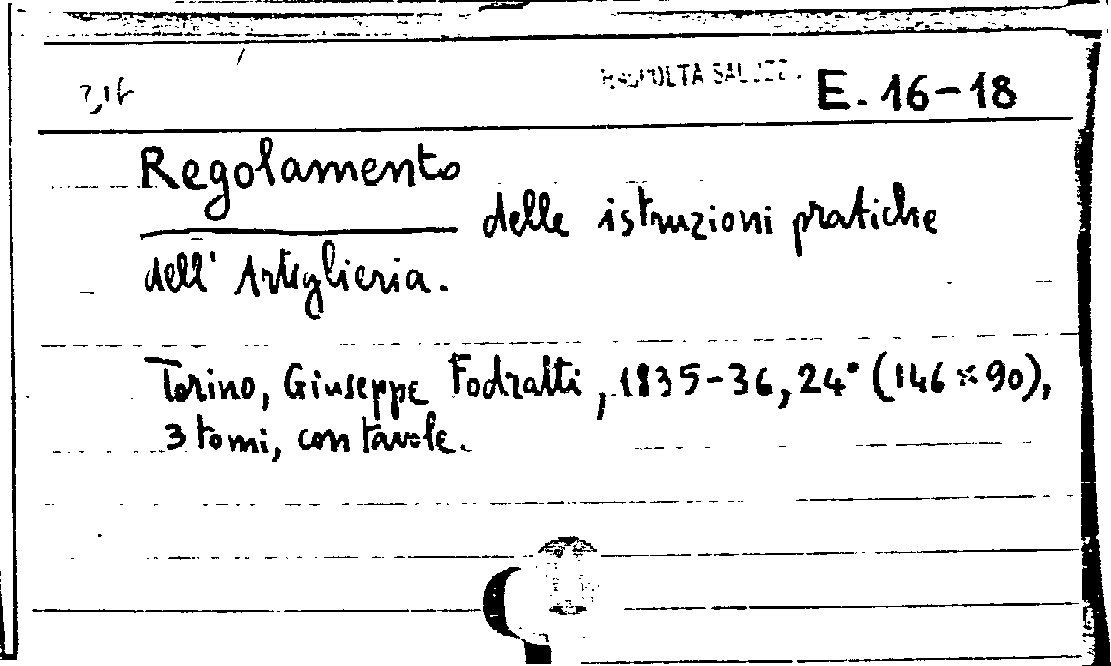 RACCOLTA SALUZZ. E. 16-18
Regolamento
delle istruzioni pratiche
dell' Artiglieria.
Torino, Giuseppe Fodratti, 1835-36, 24° (146 × 90),
3 tomi, con tavole.